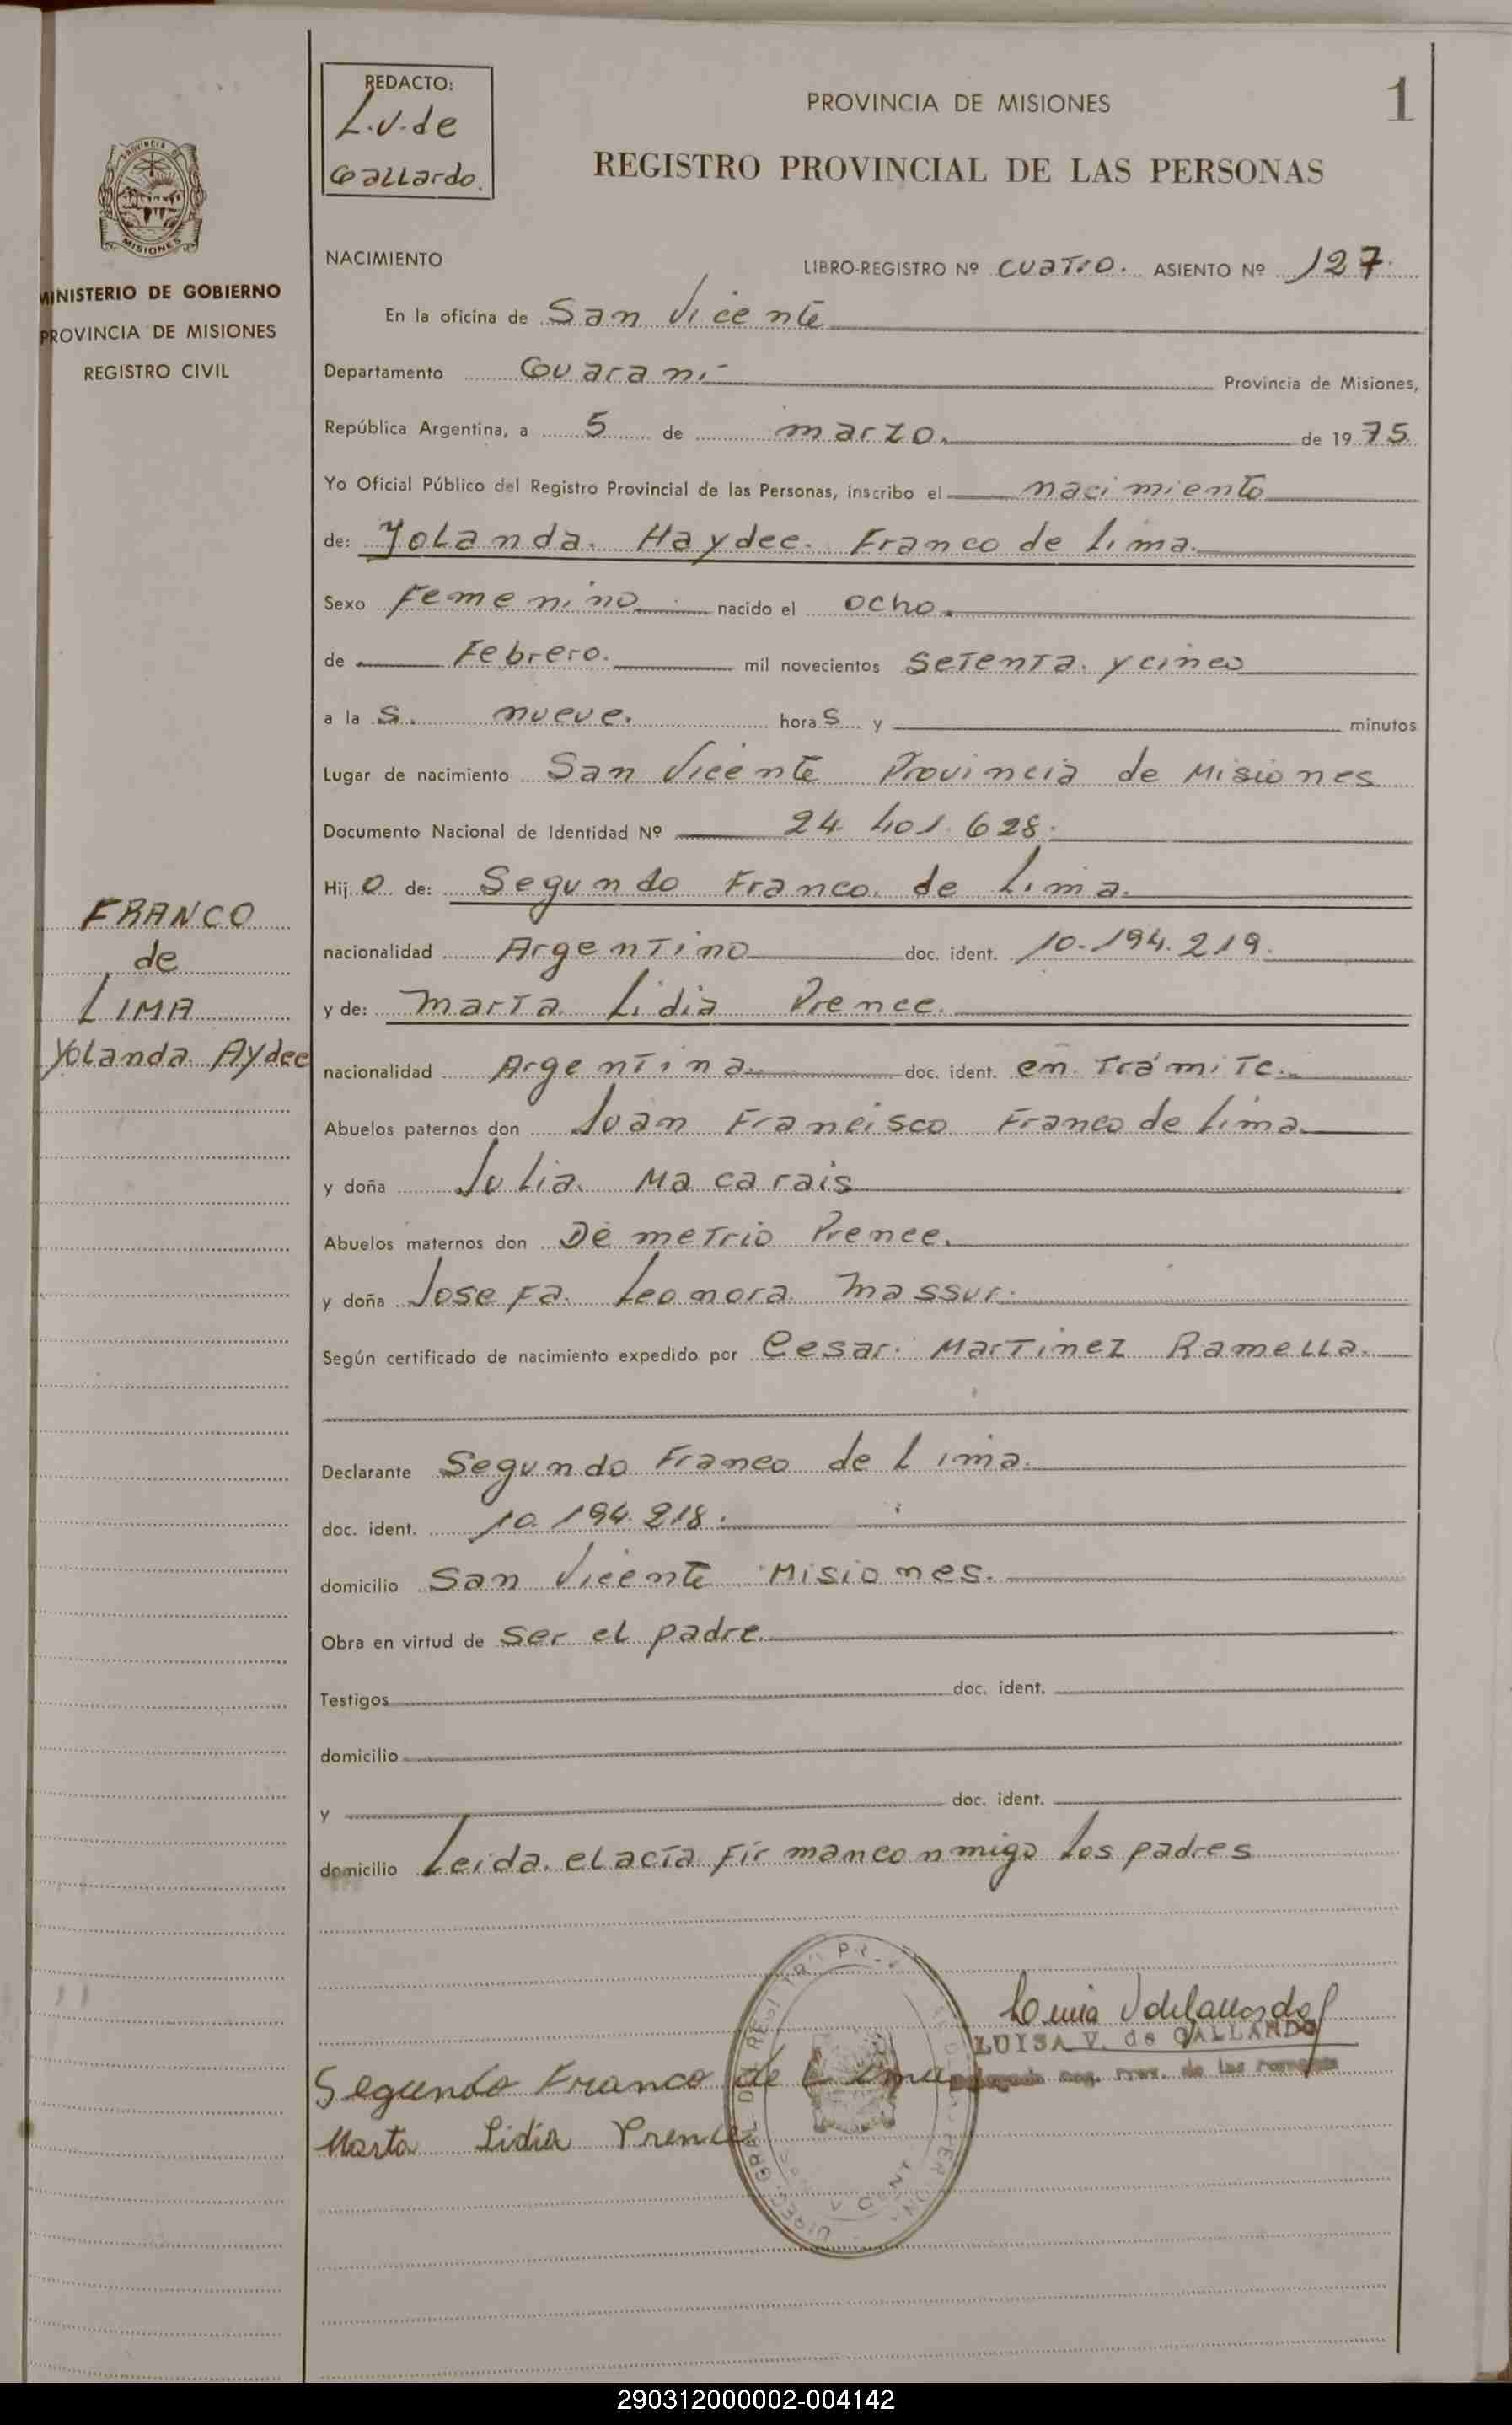 REDACTO:
L.V. de
Gallardo.
PROVINCIA DE MISIONES
1
REGISTRO PROVINCIAL DE LAS PERSONAS
PROVINCIA DE
MISIONES
MINISTERIO DE GOBIERNO
PROVINCIA DE MISIONES
REGISTRO CIVIL
NACIMIENTO
LIBRO-REGISTRO Nº cuatro. ASIENTO Nº 127.
En la oficina de San Vicente
Departamento Guaraní Provincia de Misiones,
República Argentina, a 5 de marzo. de 1975
Yo Oficial Público del Registro Provincial de las Personas, inscribo el nacimiento
de: Yolanda. Haydee. Franco de Lima.
Sexo Femenino nacido el ocho.
de Febrero. mil novecientos setenta. y cinco
a la s. nueve. hora s y minutos
Lugar de nacimiento San Vicente Provincia de Misiones
Documento Nacional de Identidad Nº 24.401.628.
Hij o de: Segundo Franco. de Lima.
nacionalidad Argentino doc. ident. 10.194.219.
y de: Marta Lidia Prence.
nacionalidad Argentina. doc. ident. en trámite.
Abuelos paternos don Juan Francisco Franco de Lima.
y doña Julia. Macarais
Abuelos maternos don Demetrio Prence.
y doña Josefa. Leonora Massur.
Según certificado de nacimiento expedido por Cesar. Martinez Ramella.
Declarante Segundo Franco de Lima.
doc. ident. 10.194.218.
domicilio San Vicente Misiones.
Obra en virtud de ser el padre.
Testigos doc. ident.
domicilio
y doc. ident.
domicilio Leida. el acta firman conmigo los padres
FRANCO
de
LIMA
Yolanda Aydee
LUISA V. de GALLARDO
Segundo Franco de Lima
Marta Lidia Prence
290312000002-004142